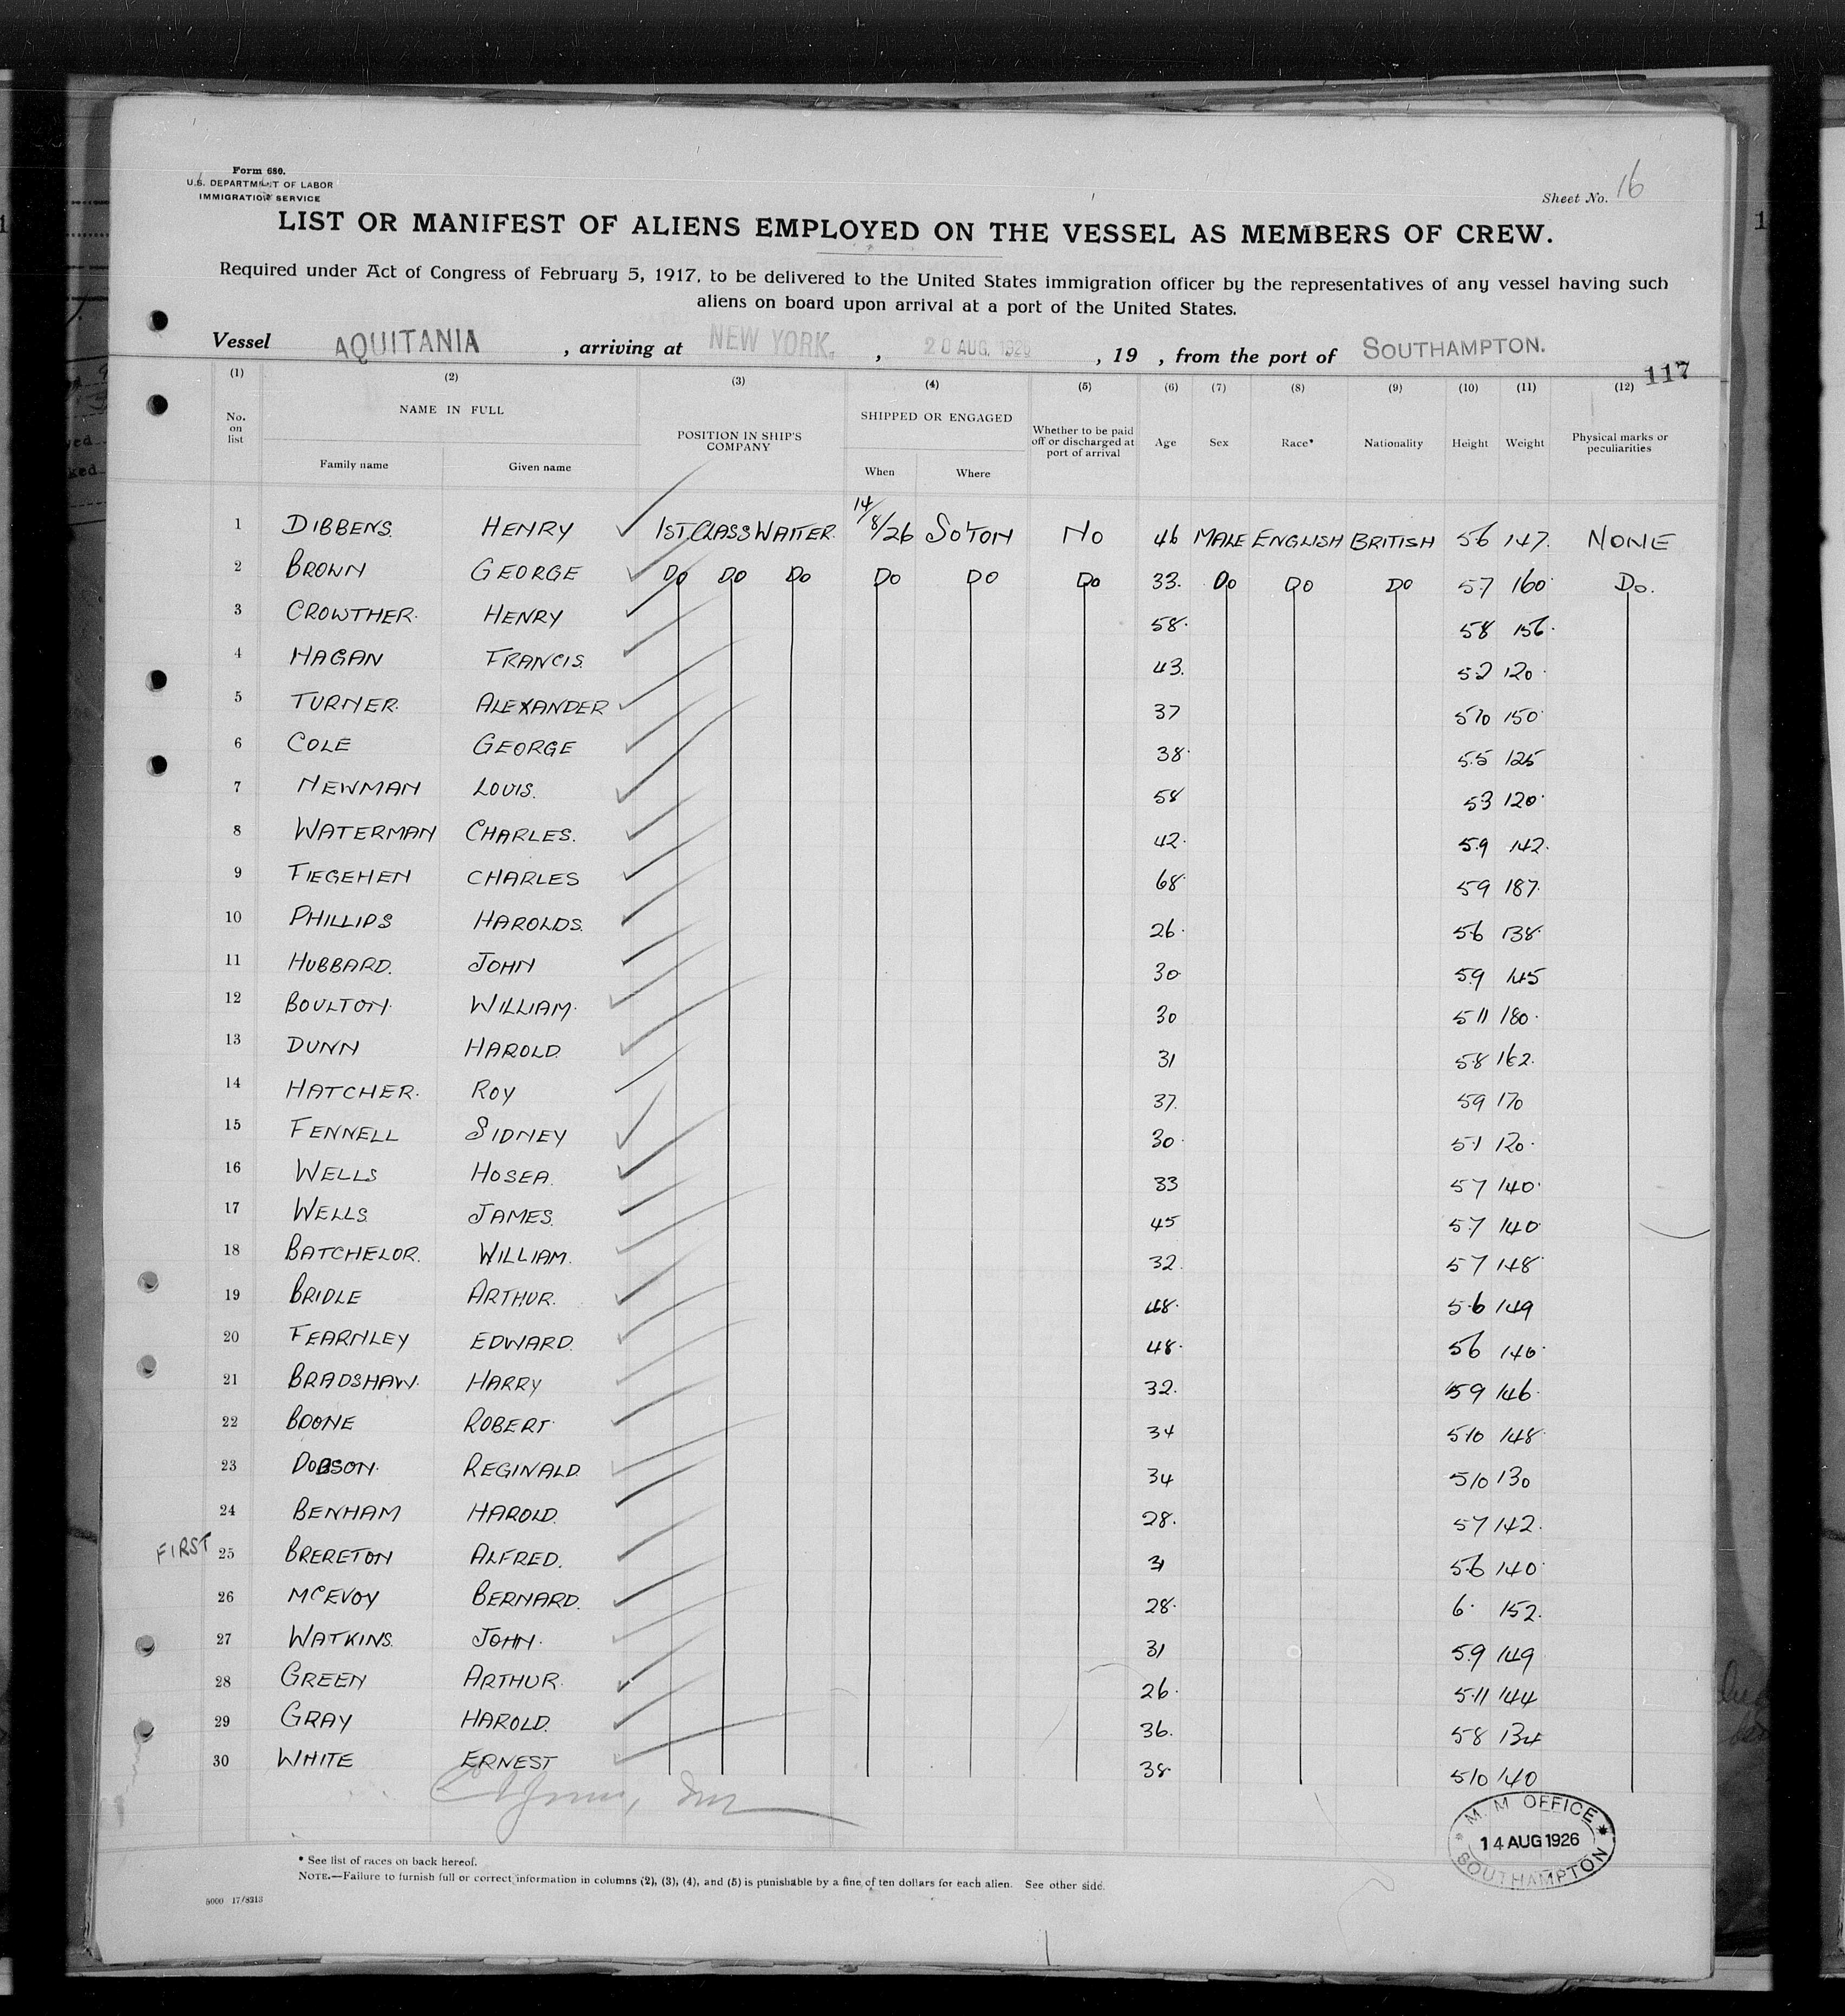 Form 680.
U.S. DEPARTMENT OF LABOR
IMMIGRATION SERVICE
Sheet No. 16
LIST OR MANIFEST OF ALIENS EMPLOYED ON THE VESSEL AS MEMBERS OF CREW.
Required under Act of Congress of February 5, 1917, to be delivered to the United States immigration officer by the representatives of any vessel having such
aliens on board upon arrival at a port of the United States.
Vessel AQUITANIA , arriving at NEW YORK. , 20 AUG. 1926 , 19 , from the port of SOUTHAMPTON.
117
(1) (2) (3) (4) (5) (6) (7) (8) (9) (10) (11) (12)
No. on list NAME IN FULL Family name Given name POSITION IN SHIP'S COMPANY SHIPPED OR ENGAGED When Where Whether to be paid off or discharged at port of arrival Age Sex Race* Nationality Height Weight Physical marks or peculiarities
1 DIBBENS. HENRY 1ST CLASS WAITER. 14/8/26 SO'TON NO 46 MALE ENGLISH BRITISH 56 147. NONE
2 BROWN GEORGE DO DO DO DO DO DO 33. DO DO DO 57 160. DO.
3 CROWTHER. HENRY 58. 58 156.
4 HAGAN FRANCIS. 43. 52 120.
5 TURNER. ALEXANDER 37 510 150.
6 COLE GEORGE 38. 5.5 125
7 NEWMAN LOUIS. 58 53 120.
8 WATERMAN CHARLES. 42. 5.9 142.
9 FIEGEHEN CHARLES 68. 59 187.
10 PHILLIPS HAROLDS. 26. 56 138.
11 HUBBARD. JOHN 30. 59 145
12 BOULTON. WILLIAM. 30 511 180.
13 DUNN HAROLD. 31 5.8 162.
14 HATCHER. ROY 37. 59 170
15 FENNELL SIDNEY 30. 5.1 120.
16 WELLS HOSEA. 33 57 140.
17 WELLS. JAMES. 45 5.7 140.
18 BATCHELOR. WILLIAM. 32. 57 148.
19 BRIDLE ARTHUR. 48. 5.6 149
20 FEARNLEY EDWARD. 48. 56 140.
21 BRADSHAW. HARRY 32. 59 146.
22 BOONE ROBERT. 34 5.10 148.
23 DOBSON. REGINALD. 34 510 130
24 BENHAM HAROLD. 28. 57 142.
FIRST 25 BRERETON ALFRED. 31 56 140.
26 MCEVOY BERNARD. 28. 6. 152.
27 WATKINS. JOHN. 31 5.9 149
28 GREEN ARTHUR. 26. 5.11 144
29 GRAY HAROLD. 36. 58 134
30 WHITE ERNEST 38. 510 140
M. M OFFICE
14 AUG 1926
SOUTHAMPTON
* See list of races on back hereof.
NOTE.—Failure to furnish full or correct information in columns (2), (3), (4), and (5) is punishable by a fine of ten dollars for each alien. See other side.
5000 17/8313